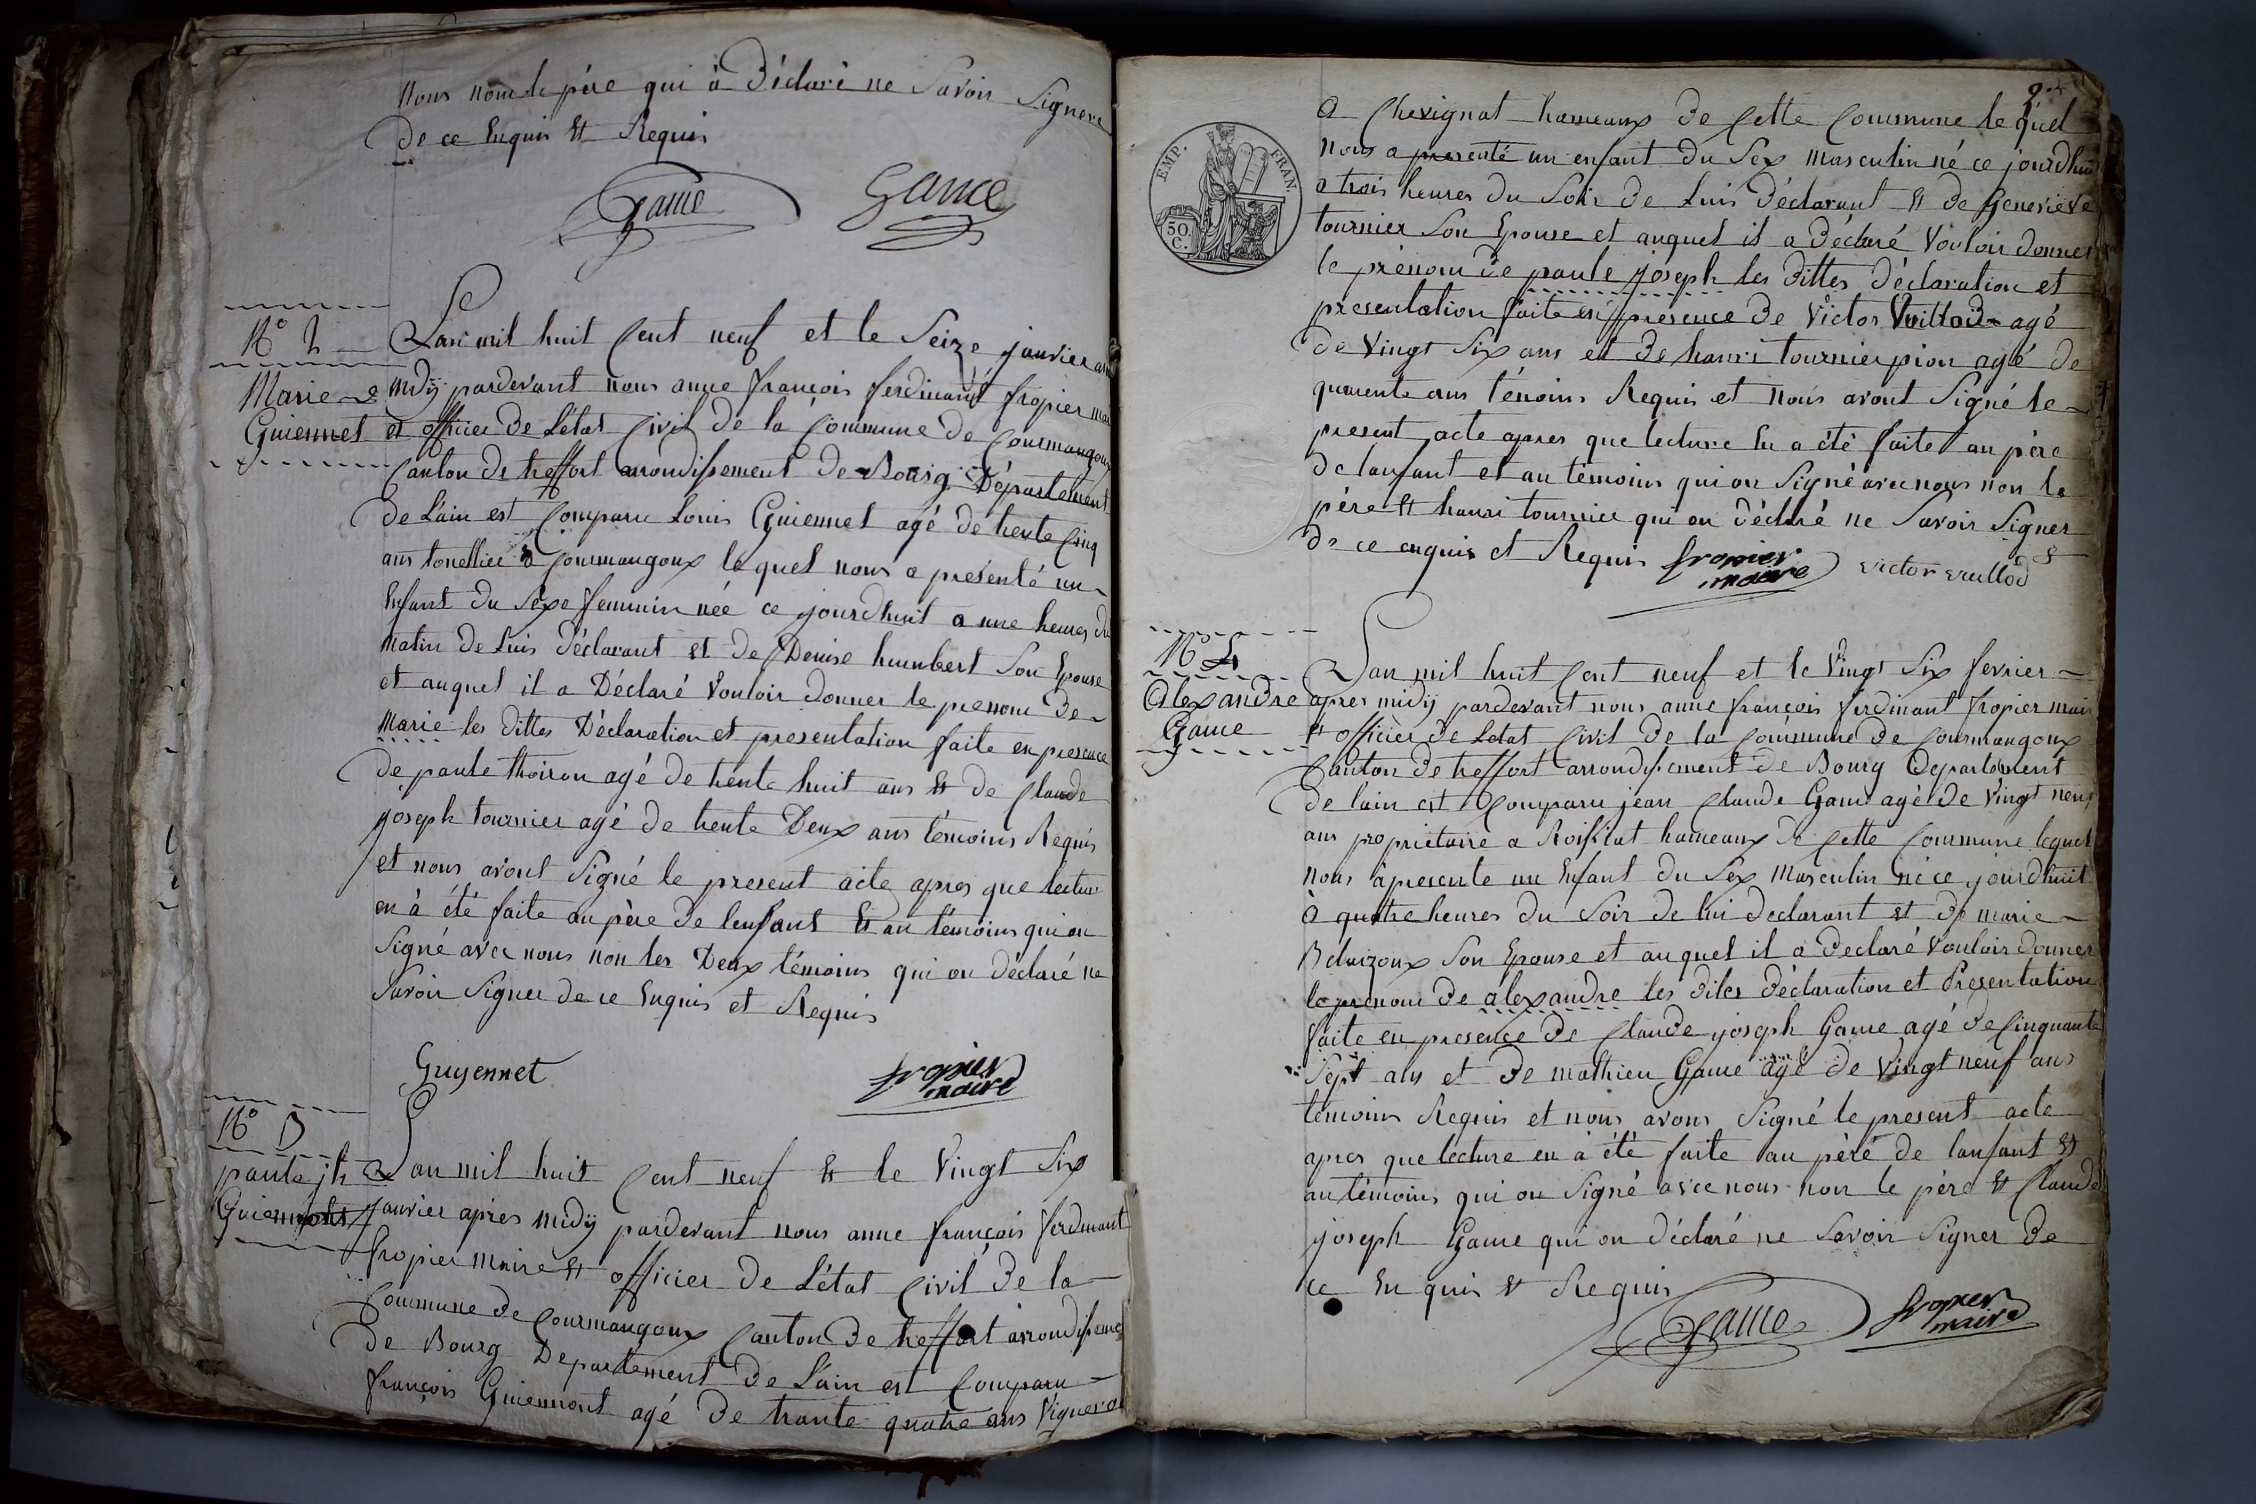 Nous non le pére qui à Déclaré ne Savoir Signere
De ce Enquis Et Requis
Game Game
N° 2
Marie
Guiennet
Lan mil huit Cent neuf et le Seize janvier
midÿ pardevant nous anne françois ferdinant fropier
et officier De Létat Civil De la Commune De Courmangoux
Canton de treffort arrondissement De Bourg Département
De Lain est Comparu Louis Guiennet agé De trente Cinq
ans tonellier a Courmangoux le quel nous a presenté un
Enfant Du Sexe feminin née ce jourdhuit a une heures du
Matin De Luis Déclarant et De Denise humbert Son Epouse
et auquel il a Déclaré Vouloir donner le prenom De
Marie les dittes Déclaration et presentation faite en presence
De paule thoiron agé de trente huit ans Et De Claude
joseph tournier agé de trente Deux ans témoins Requis
et nous avont Signé le present acte apres que lecture
en à été faite au père De lenfant Et au témoins qui on
Signé avec nous non les Deux témoins qui on déclaré ne
Savoir Signer De ce Enquis et Requis
Guyennet fropier
maire
N° 3
paule jh
Lan mil huit Cent neuf Et le Vingt Six
janvier apres midÿ pardevant nous anne françois ferdinant
fropier maire Et officier De Létat Civil De la
Commune De Courmangoux Canton De treffort arrondisseme
De Bourg Departement De Lain est Comparu
françois Guiennont agé De trante quatre ans Vigneron
a Chevignat hameaux De Cette Commune le quel
nous a presenté un enfant Du Sex masculin né ce jourdhui
a trois heures Du Soir De Luis Déclarant Et De Genevieve
tournier Son Epouse et auquel il a Déclaré Vouloir donner
le prénom De paule joseph les Dittes Déclaration et
presentation faite en presence De Victor Vuillod agé
De Vingt Six ans et De hanri tournier pion agé De
quarente ans témoins Requis et nous avont Signé le
present acte apres que lecture En a été faite au père
De lanfant et au témoins qui on Signé avec nous non le
père Et hanri tournier qui on déclaré ne Savoir Signer
De ce enquis et Requis fropier
maire victor vuillod
EMP. FRAN.
50.
C.
N° 4
Alexandre
Game
Lan mil huit Cent neuf et le Vingt Six fevrier
apres midÿ pardevant nous anne françois ferdinant fropier mair
Et officier De Letat Civil De la Commune De Courmangoux
Canton De treffort arrondissement De Bourg Departement
De lain est Comparu jean Claude Game agé De Vingt neuf
ans propriétaire a Roissiat hameaux De Cette Commune lequel
nous à presente un Enfant Du Sex Masculin né ce jourdhuit
à quatre heures Du Soir De lui declarant et De marie
Son Epouse et auquel il a Declaré Vouloir donner
le prenom De alexandre les Dites Déclaration et Presentation
faite en presence De Claude joseph Game agé De Cinquante
Sept ans et De mathieu Game agé De Vingt neuf ans
témoins Requis et nous avons Signé le present acte
apres que lecture en à été faite au père De lanfant Et
au témoins qui on Signé avec nous non le père Et Claude
joseph Game qui on Déclaré ne Savoir Signer De
ce En quis Et Requis
Game fropier
maire